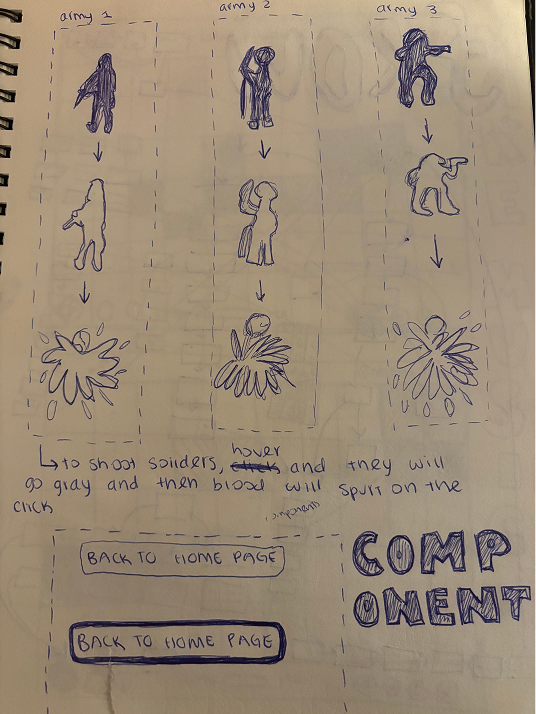 army 1
army 2
army 3
to shoot soilders, click hover and they will
go gray and then blood will spurt on the
click
component
BACK TO HOME PAGE
COMP
ONENT
BACK TO HOME PAGE